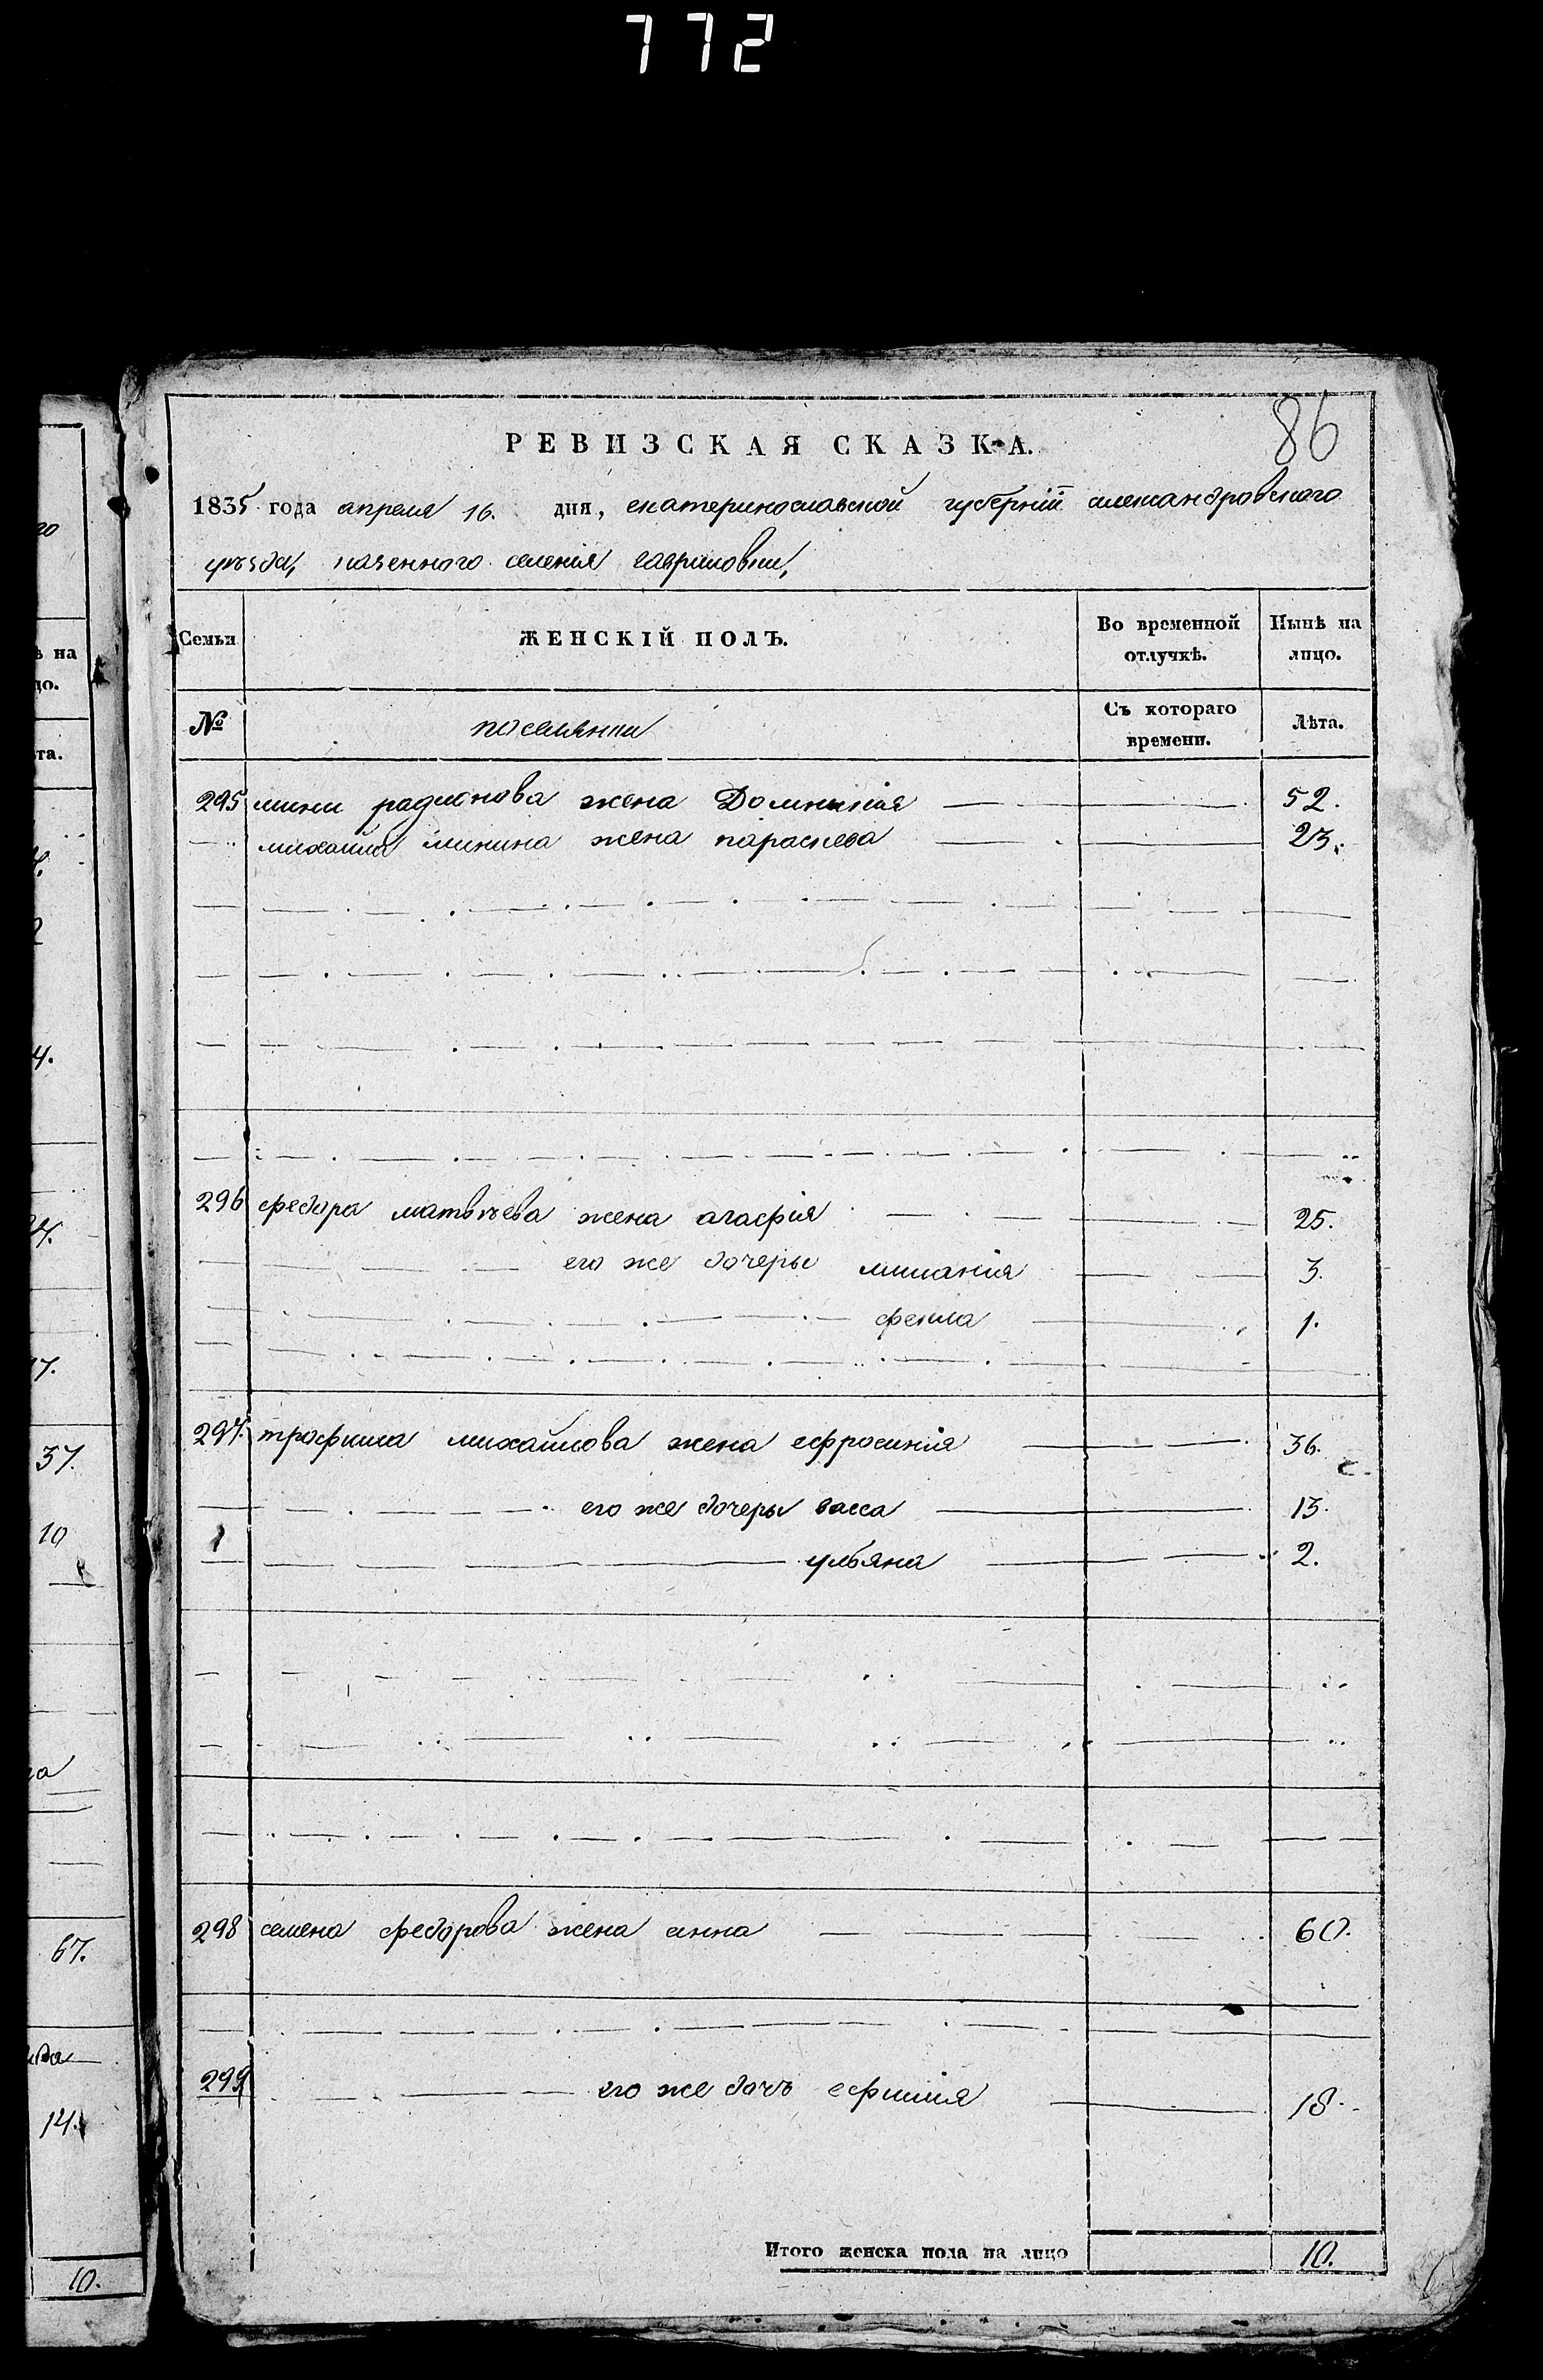 772
86
РЕВИЗСКАЯ СКАЗКА.
1835 года апреля 16. дня, екатеринославской губернїи александровского
уѣзда, казенного селенїя гавриловки,
Семьи ЖЕНСКІЙ ПОЛЪ. Во временной отлучкѣ. Нынѣ на лицо.
№ поселянки Съ котораго времени. Лѣта.
295 мини радионова жена Домникїя 52.
михайла минина жена параскева 23.
296 федора матвѣева жена агафїя 25.
его же дочеры миланїя 3.
фекла 1.
297. трофима михайлова жена ефросинїя 36.
его же дочеры васса 13.
ульяна 2.
298 семена федорова жена анна 60.
299 его же дочь ефимїя 18.
Итого женска пола на лицо 10.
го
ѣ на
цо.
та.
4.
2
4.
4.
7.
37.
10
на
67.
14.
10.